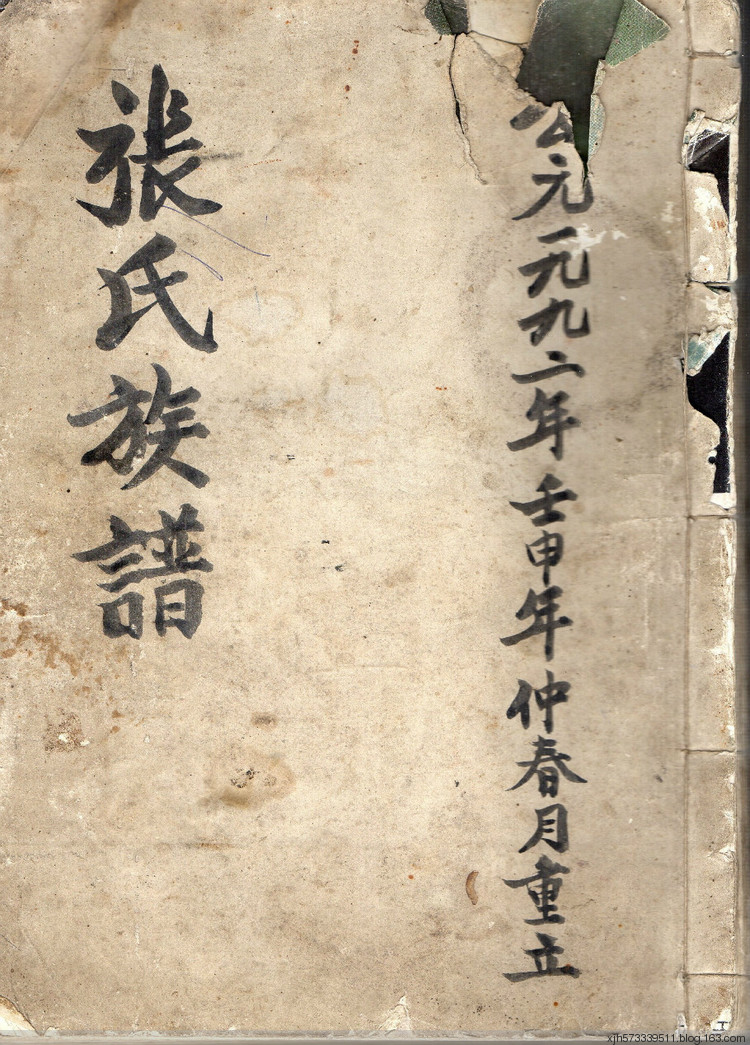 公元一九九二年壬申年仲春月重立
張氏族譜
xjh573339511.blog.163.com